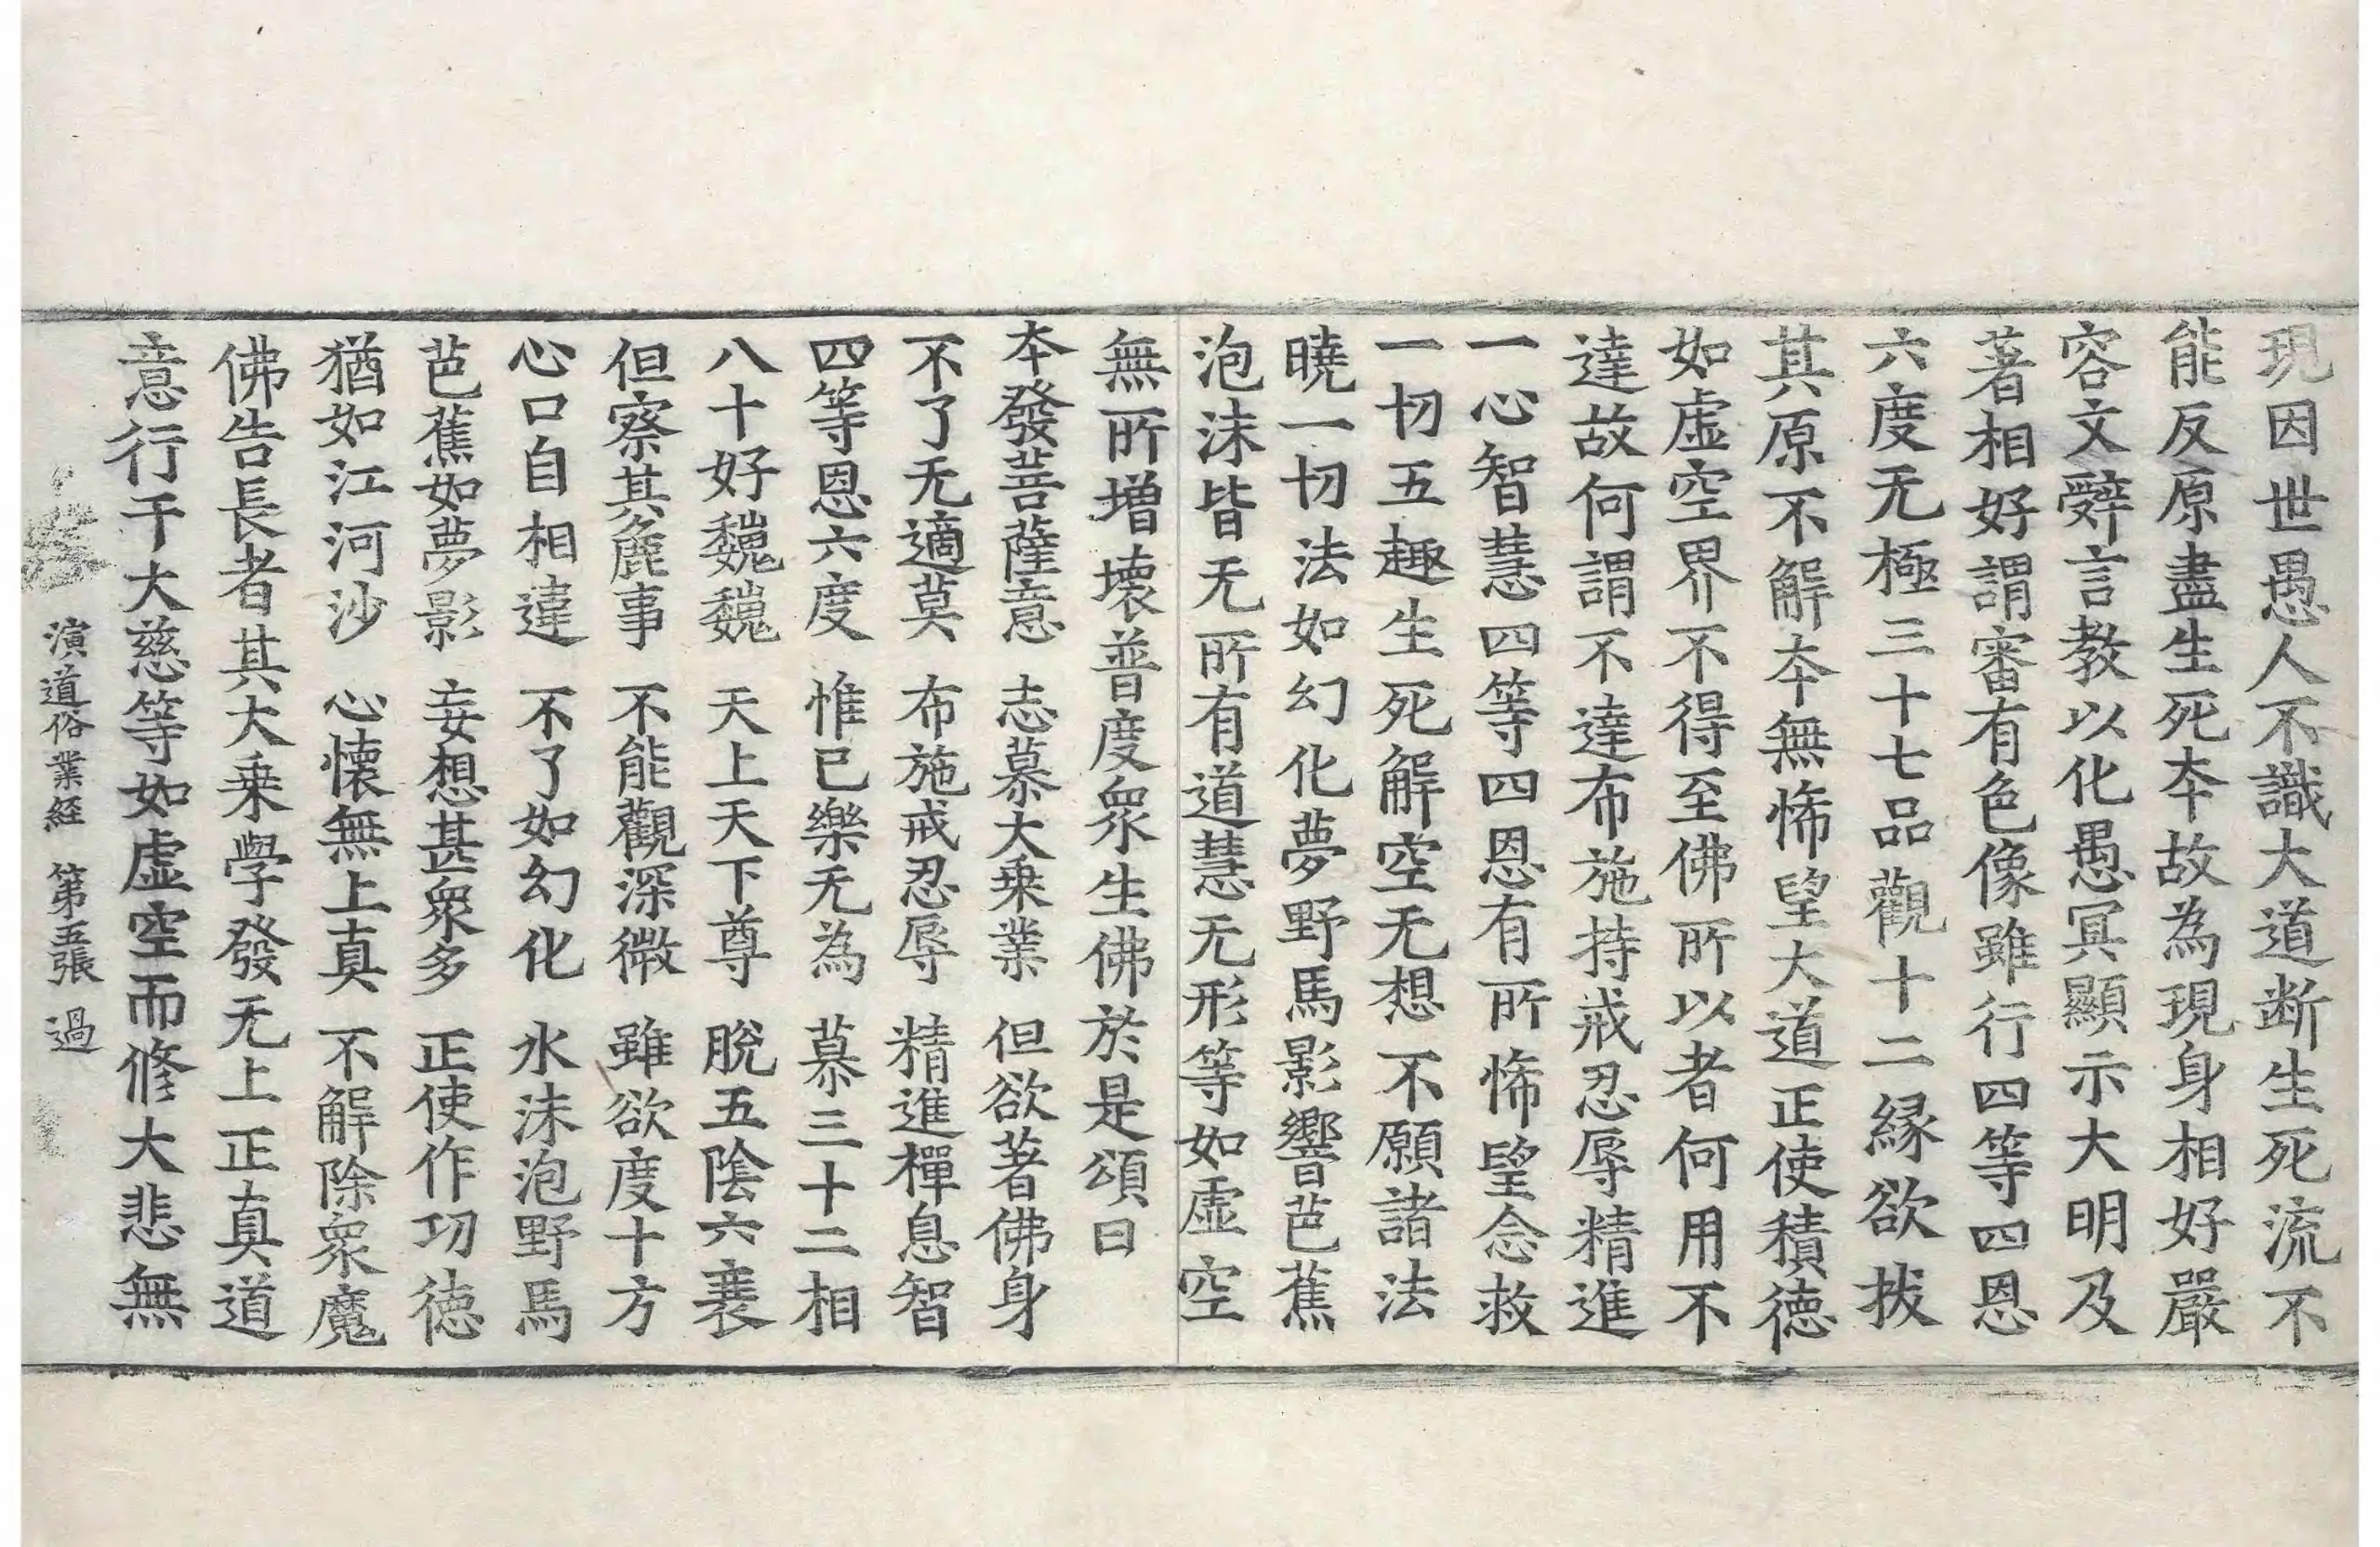 現因世愚人不識大道断生死流不
能反原盡生死夲故為現身相好嚴
容文辭言教以化愚冥顯示大明及
著相好謂審有色像雖行四等四恩
六度无極三十七品觀十二縁欲拔
其原不解夲無悕望大道正使積德
如虛空界不得至佛所以者何用不
達故何謂不達布施持戒忍辱精進
一心智慧四等四恩有所悕望念救
一切五趣生死解空无想不願諸法
曉一切法如幻化夢野馬影響芭蕉
泡沫皆无所有道慧无形等如虛空
無所增壞普度衆生佛於是頌曰
夲發菩薩意　志慕大乗業　但欲著佛身
不了无適莫　布施戒忍辱　精進禪息智
四等恩六度　惟已樂无為　慕三十二相
八十好巍巍　天上天下尊　脫五陰六衰
但察其麁事　不能觀深微　雖欲度十方
心口自相違　不了如幻化　水沫泡野馬
芭蕉如夢影　妄想甚衆多　正使作功徳
猶如江河沙　心懷無上真　不解除衆魔
佛告長者其大乗學發无上正真道
意行于大慈等如虛空而修大悲無
演道俗業経　第五張　過